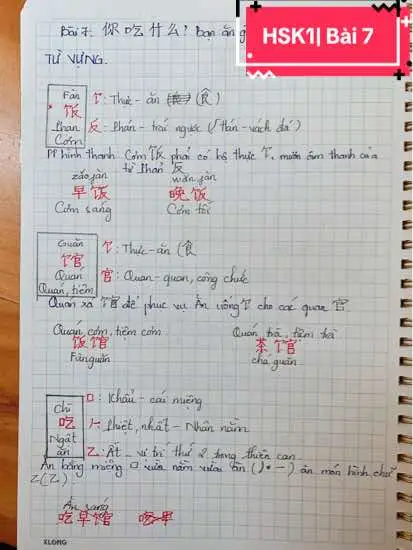 HSK1| Bài 7
Bài 7. 你吃什么? Bạn ăn g
TỪ VỰNG.
Fàn
饭
Phan
Cơm
饣: Thức - ăn (食)
反: Phản - trái ngược (Phán - vách đá)
PP hình thanh. Cơm 饭 phải có bộ thực 饣, mượn âm thanh của
từ Phản 反
zǎo fàn
wǎn fàn
早饭
晚饭
Cơm sáng
Cơm tối
Guǎn
馆
Quan
Quán, tiệm
饣: Thức - ăn (食
官: Quan - quan, công chức
Quán xá 馆 để phục vụ Ăn uống 饣 cho các quan 官.
Quán, cơm, tiệm cơm
Quán trà, tiệm trà
饭馆
茶馆
Fànguǎn
chá guǎn
Chī
吃
Ngật
ăn
口: Khẩu - cái miệng
𠂉: Nhân nằm
乙: Ất - vị trí thứ 2 trong thiên can
Ăn bằng miệng 口 vừa nằm vừa ăn ăn món hình chữ
Z (乙).
Ăn sáng
吃早馆
XLONG